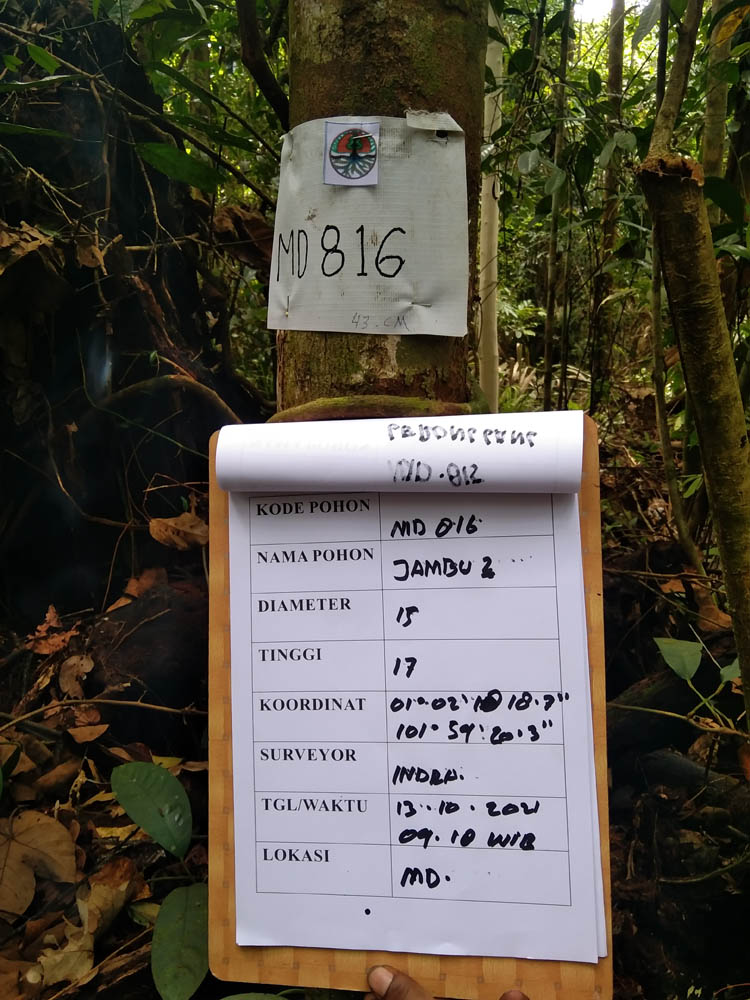 MD 816
43.CM
MD.812
KODE POHON MD 816
NAMA POHON JAMBU 2
DIAMETER 15
TINGGI 17
KOORDINAT 01° 02' 18.7"
101° 59' 20.3"
SURVEYOR INDRA.
TGL/WAKTU 13.10.2021
09.10 WIB
LOKASI MD.